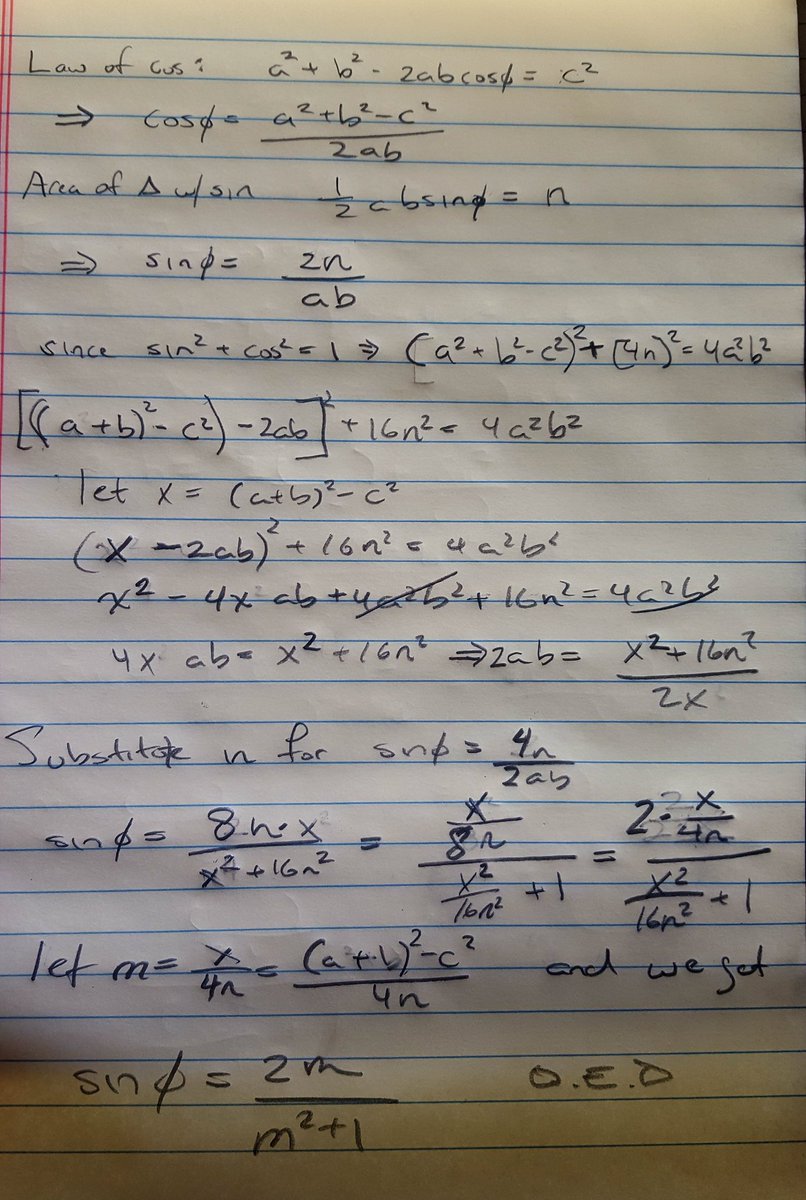 Law of cos: a² + b² - 2abcosϕ = c²
⇒ cosϕ = (a²+b²-c²)/(2ab)
Area of Δ w/sin 1/2 absinϕ = n
⇒ sinϕ = 2n/ab
since sin² + cos² = 1 ⇒ (a²+b²-c²)² + (4n)² = 4a²b²
[((a+b)²-c²)-2ab]² + 16n² = 4a²b²
let x = (a+b)²-c²
(x-2ab)² + 16n² = 4a²b²
x² - 4x ab + 4a²b² + 16n² = 4a²b²
4x ab = x² + 16n² ⇒ 2ab = (x²+16n²)/(2x)
Substitute in for sinϕ = 4n/2ab
sinϕ = (8n·x)/(x²+16n²) = (x/8n)/(x²/16n² + 1) = (2·x/4n)/(x²/16n² + 1)
let m = x/4n = ((a+b)²-c²)/4n and we get
sinϕ = 2m/(m²+1) Q.E.D